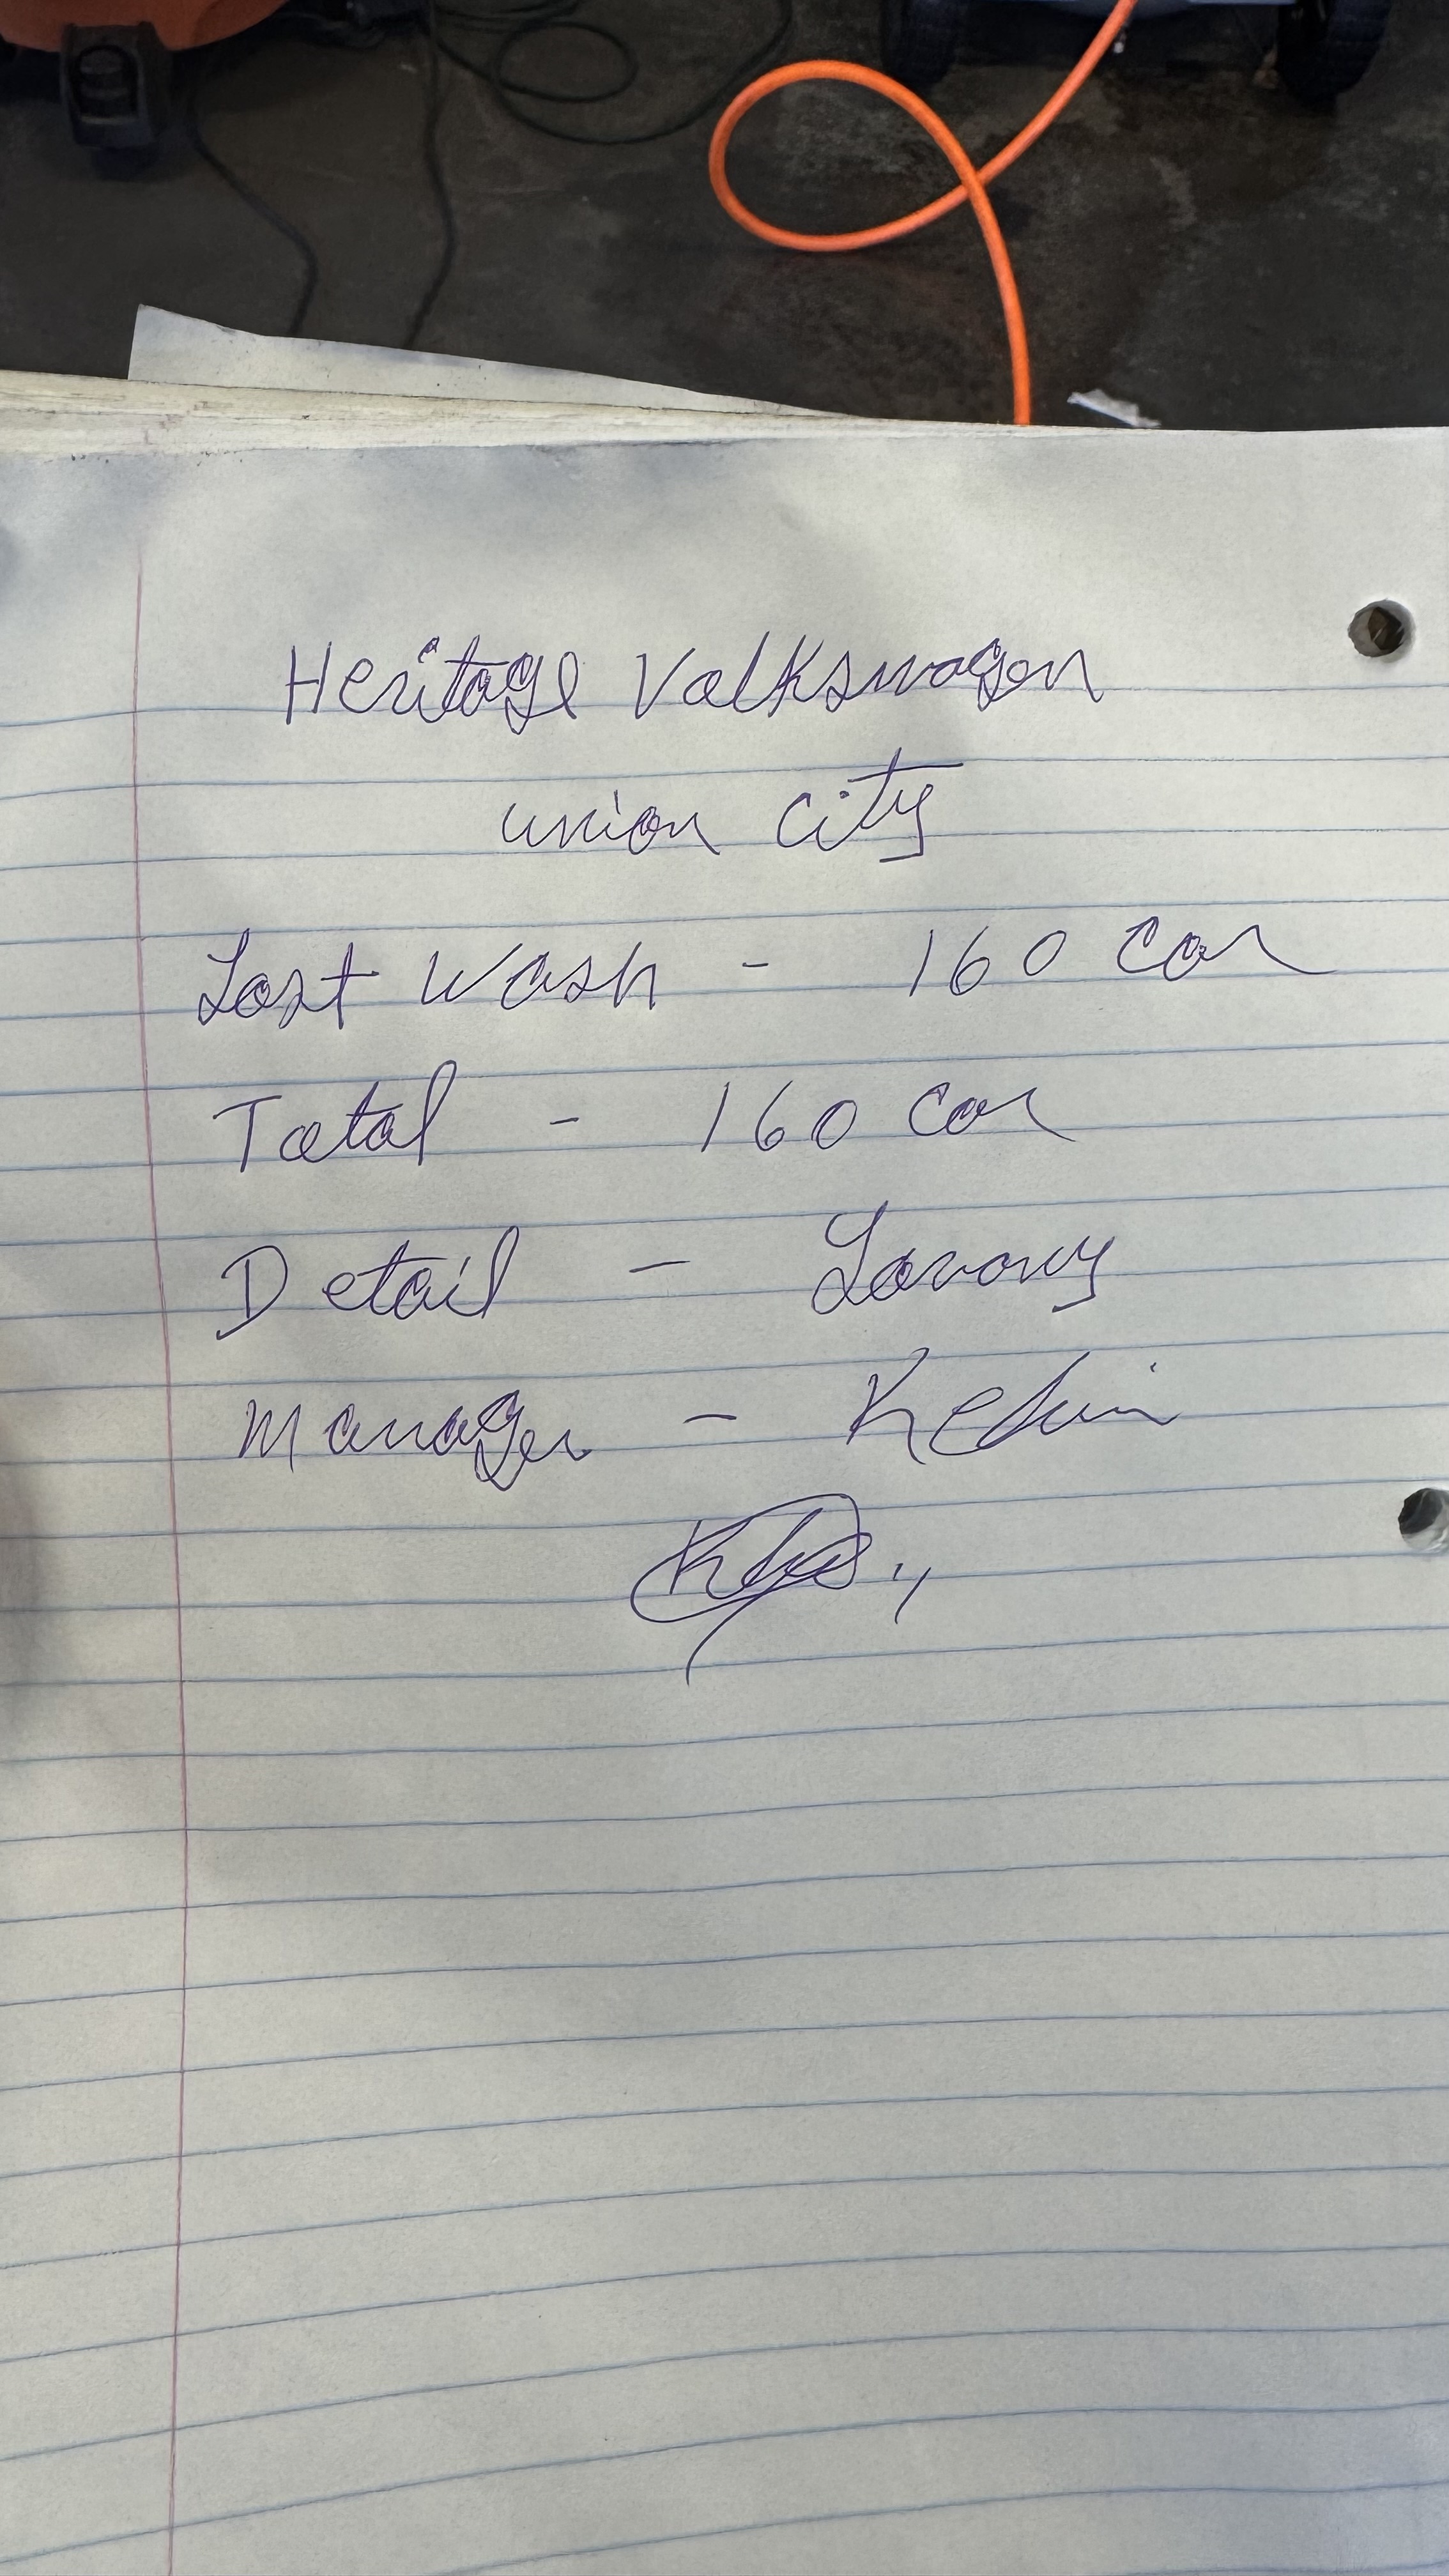 Heritage Volkswagen
union city
Lost Wash - 160 car
Total - 160 car
Detail -
Manager - Kelvin